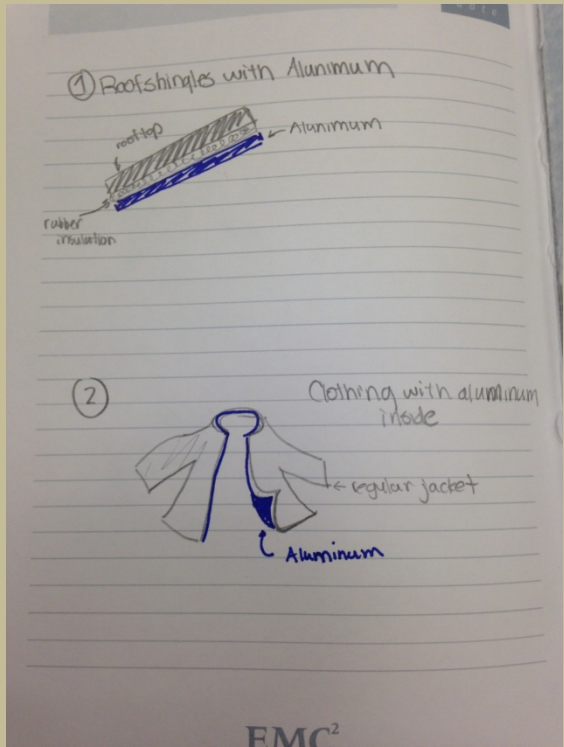 ① Roofshingles with Alunimum
rooftop
Alunimum
rubber
insulation
②
Clothing with aluminum
inside
regular jacket
Aluminum
EMC²